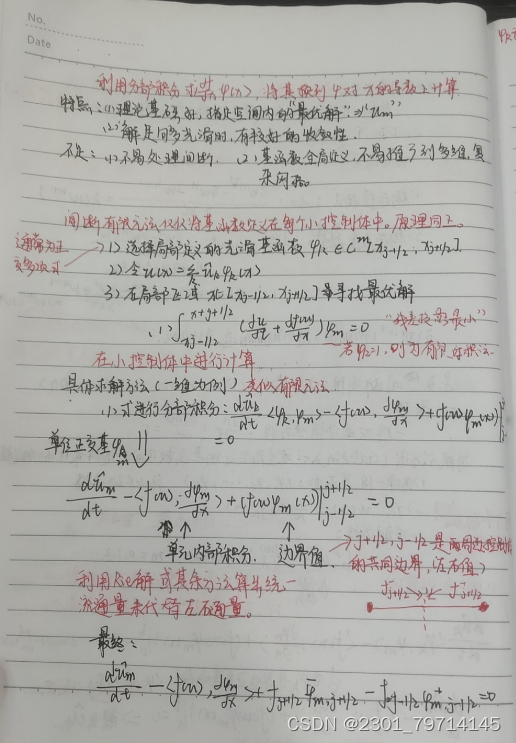 No.
Date
利用分部积分求导φ(x),将其换到φ对x的导数上计算
特点:(1)理论基础好,指定空间内的"最优解"⇒"ũm"
(2)解足够光滑时,有较好的收敛性.
不足:(1)不易处理间断. (2)基函数全局定义,不易推广到多维,复
杂问题。
间断有限元法仅仅将基函数定义在每个小控制体中。原理同上。
通常为正
交多项式
1)选择局部定义的光滑基函数 φk∈C^m[xj-1/2, xj+1/2]
2)令u(x)=Σ ûk φk(x)
3)在局部区域 x∈[xj-1/2, xj+1/2]寻找最优解
(1)∫ (du/dt + df(u)/dx)φm=0
"残差投影最小"
若φ=1,则为有限体积法
在小控制体中进行计算
具体求解方法(一维为例)类似有限元法
(1)式进行分部积分: dûk/dt <φk, φm> - <f(u), dφm/dx> + f(u)φm(x)|
=0
单位正交基φk
m
dûm/dt - <f(u), dφm/dx> + (f(u)φm(x))|j+1/2 j-1/2 = 0
单元内部积分. 边界值
j+1/2, j-1/2是两周边控制体
的共同边界,(左右值)
利用Rie解或其余方法算出统一
流通量来代替左右通量。
f⁻j+1/2 f⁺j+1/2
最终:
dûm/dt - <f(u), dφm/dx> + fj+1/2 φ⁻m,j+1/2 - fj-1/2 φ⁺m,j-1/2 =0
CSDN @2301_79714145